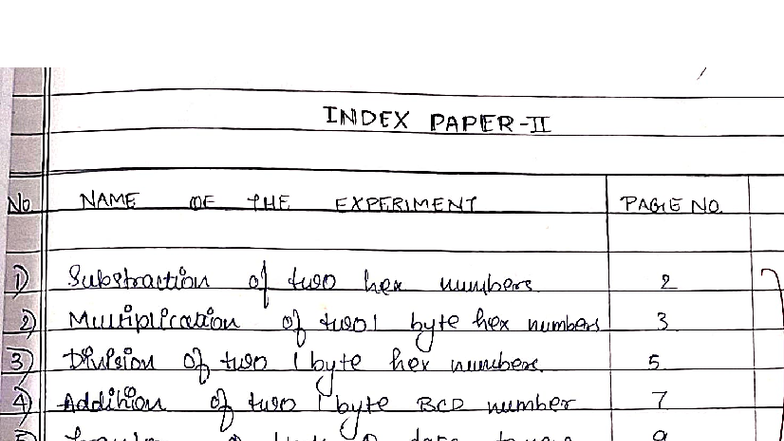 INDEX PAPER-II
No NAME OF THE EXPERIMENT PAGE NO.
1) Substraction of two hex numbers 2
2) Multiplication of two 1 byte hex numbers 3
3) Division of two 1 byte hex numbers. 5
4) Addition of two 1 byte BCD number 7
5) of data 9